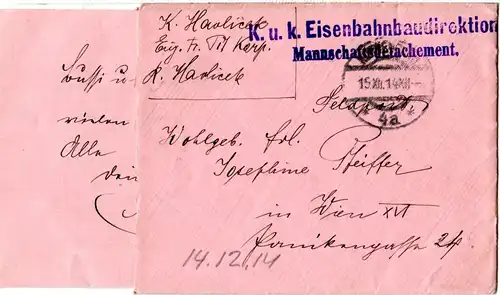 K. Havlicek
Einj. Fr. Tit. Korp.
K. Havlicek
K. u. k. Eisenbahnbaudirektion
Mannschaftsdetachement.
15.XII.14
* 4a *
Feldpost
Wohlgeb. Frl.
Josephine Pfeiffer
in Wien XVI
Panikengasse
14.12.14
Bussi u
vielen
Alle
dein